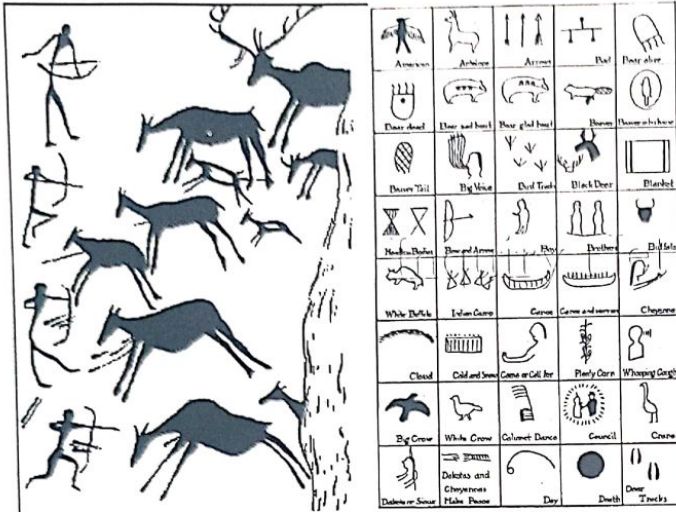 American Antelope Arrows Bad Bear alive
Bear dead Bear sad heart Bear glad heart Beaver Beaver in his house
Beaver Tail Big Voice Bird Tracks Black Deer Blanket
Bow and Arrow Boy Brothers Buffalo
White Buffalo Indian Camp Canoe Canoe and warriors Cheyenne
Cloud Cold and Snow Come or Call for Plenty Corn Whooping Cough
Big Crow White Crow Calumet Dance Council Crane
Dakota or Sioux Dakotas and Cheyennes Make Peace Day Death Deer Tracks